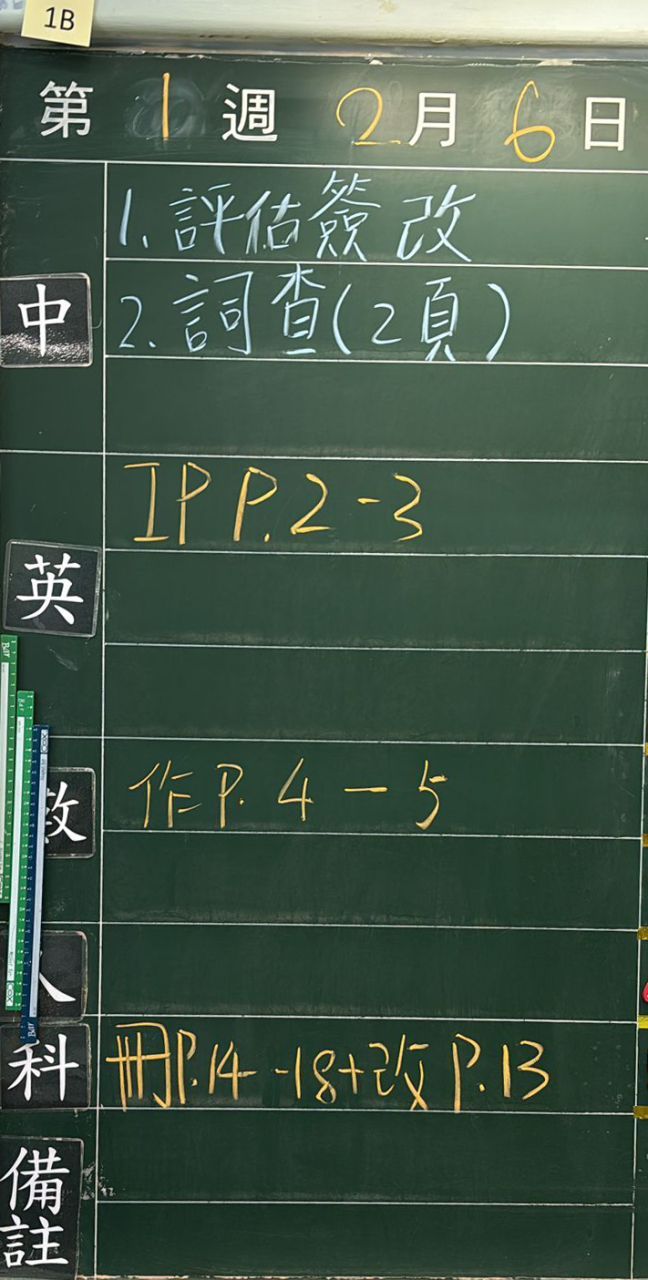 1B
第 1 週 2 月 6 日
1. 評估簽改
中
2. 詞查(2頁)
IP P.2-3
英
數 作P. 4-5
人
科 冊P.14-18+改P.13
備註